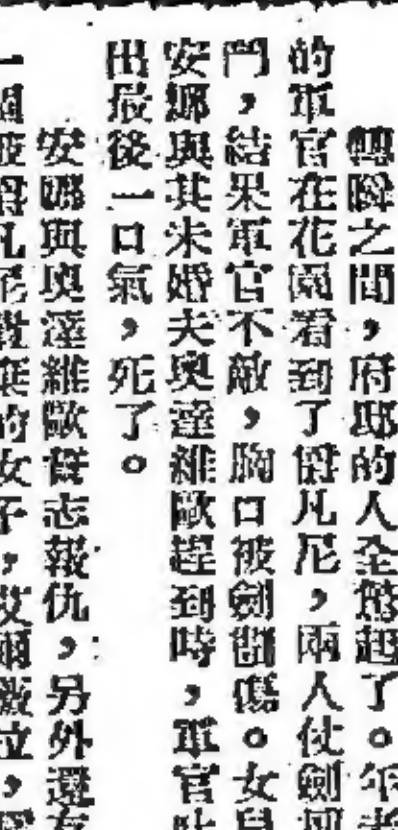 轉瞬之間，府邸的人全驚起了。年老
的軍官在花園看到了爵凡尼，兩人仗劍
鬥，結果軍官不敵，胸口被劍刺傷。女兒
安娜與其未婚夫奧達維歐趕到時，軍官吐
出最後一口氣，死了。
安娜與奧達維歐誓志報仇，另外還有
一個被爵凡尼
的女子，艾爾薇拉，